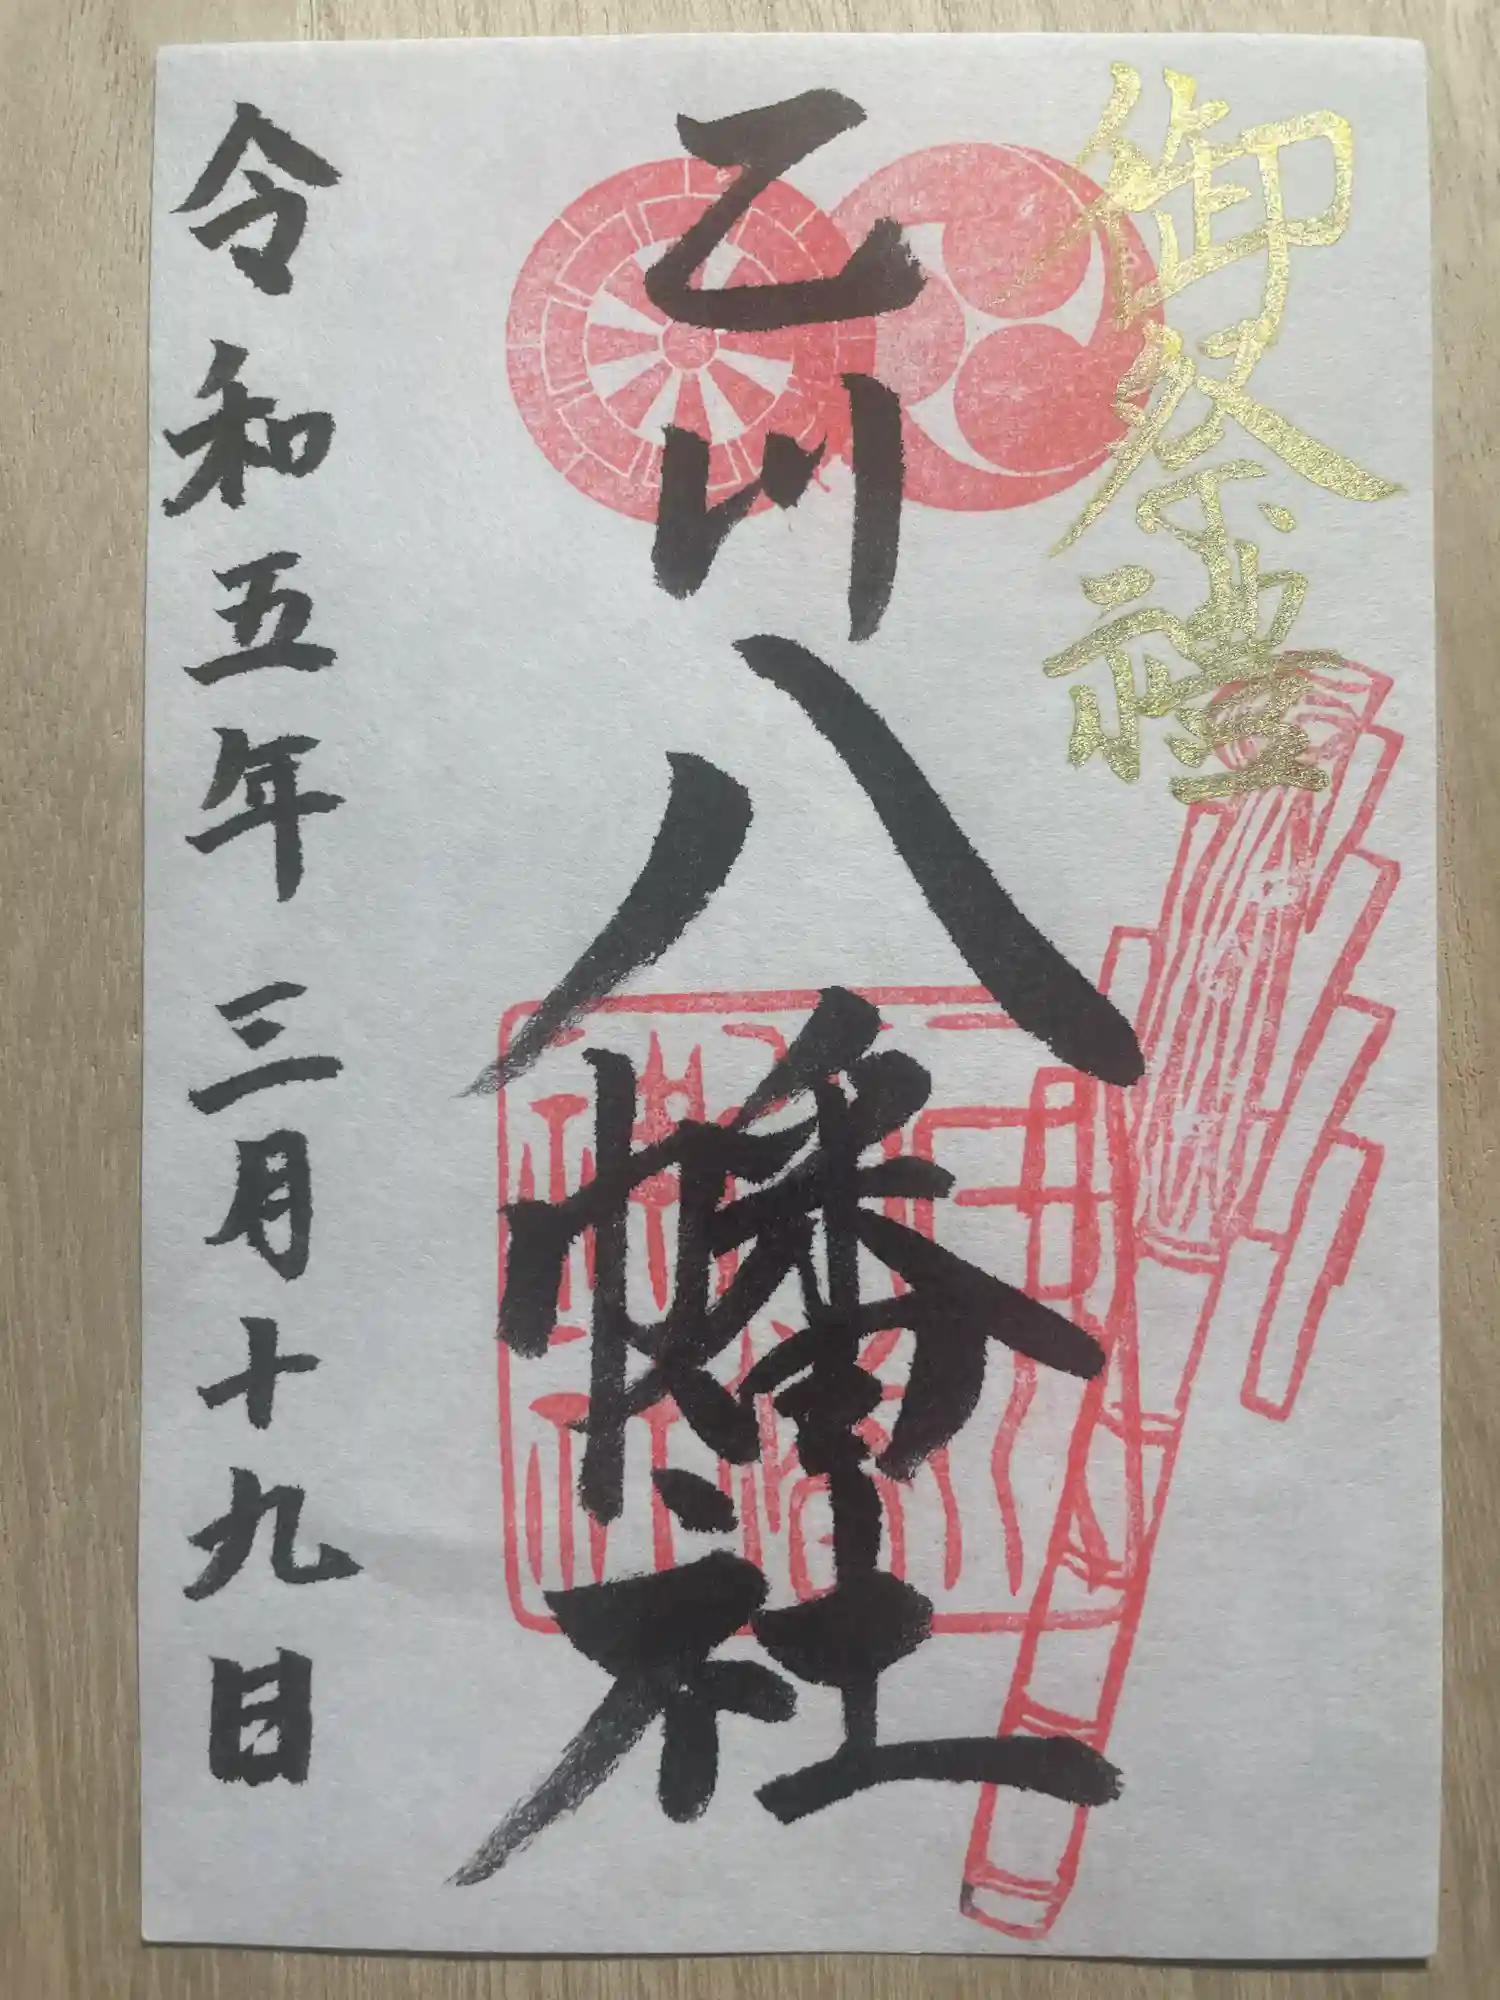 御祭禮
乙川八幡社
令和五年三月十九日